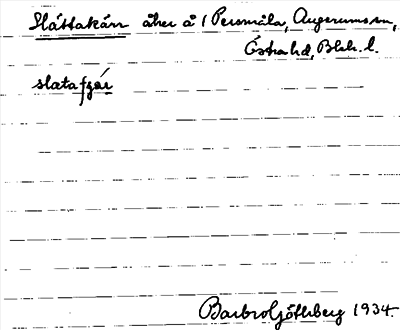 Slåttakärr åker å 1 Persmåla, Augerums sn,
Östra hd, Blek. l.
slatafʒär
Barbro Götlsberg 1934.